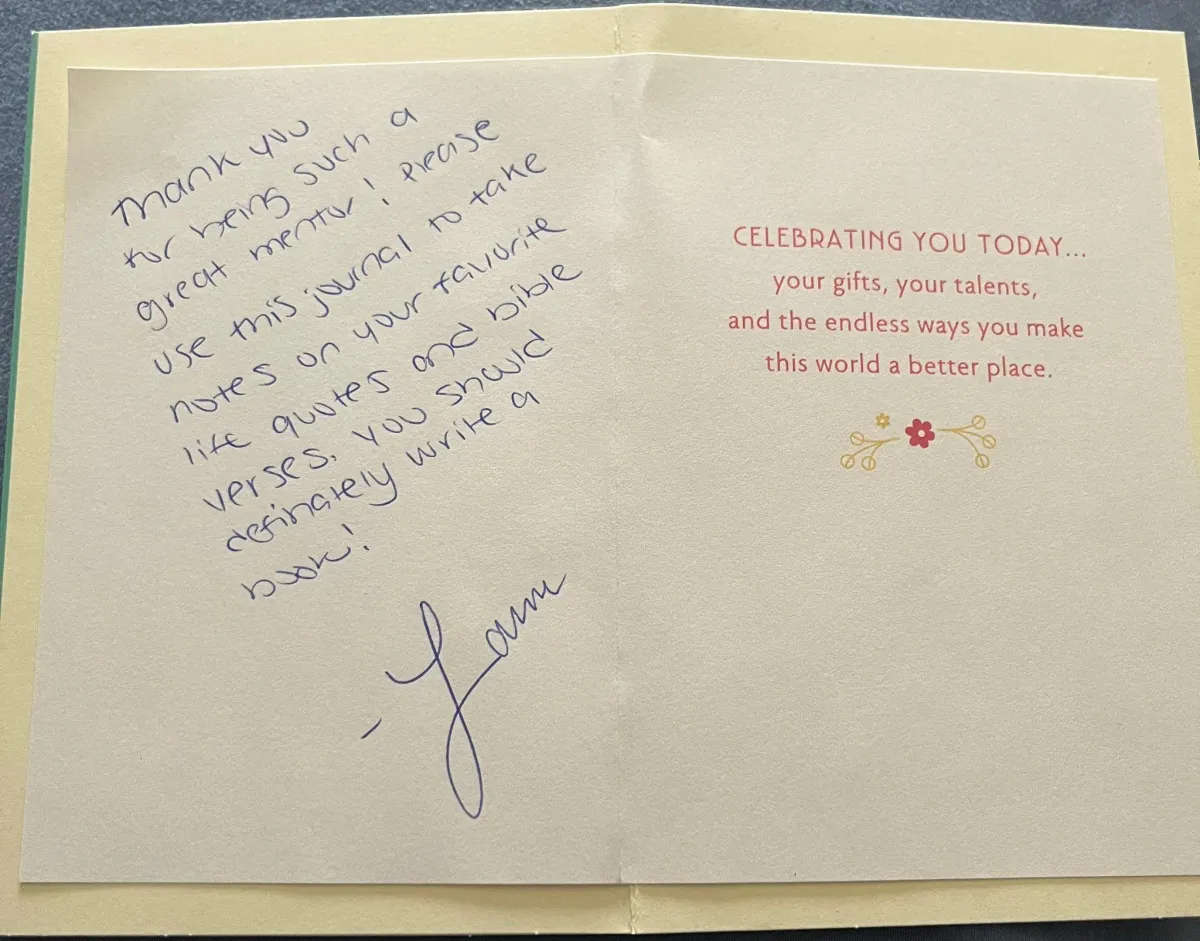 Thank you
for being such a
great mentor! Please
use this journal to take
notes on your favorite
life quotes and bible
verses. You should
definately write a
book!
CELEBRATING YOU TODAY...
your gifts, your talents,
and the endless ways you make
this world a better place.